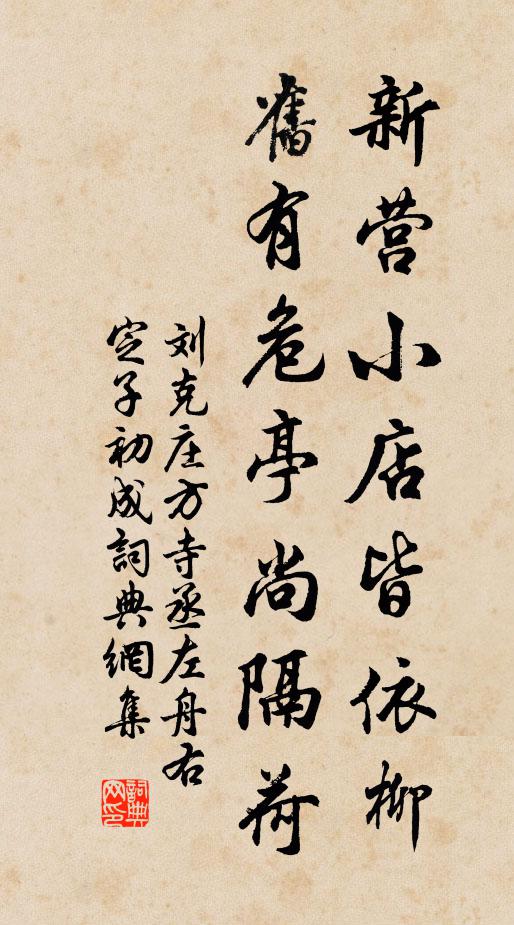 新营小店皆依柳
舊有危亭尚隔荷
刘克庄方寺丞左舟右
定子初成詞典網集
詞典网印